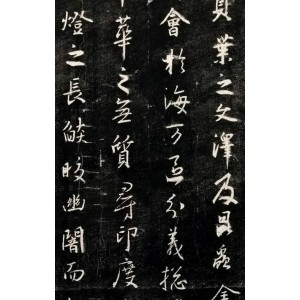 貝葉之文澤及昆蟲金
會於海万區分義揔
中華之无質尋印度
燈之長焰皎幽闇而